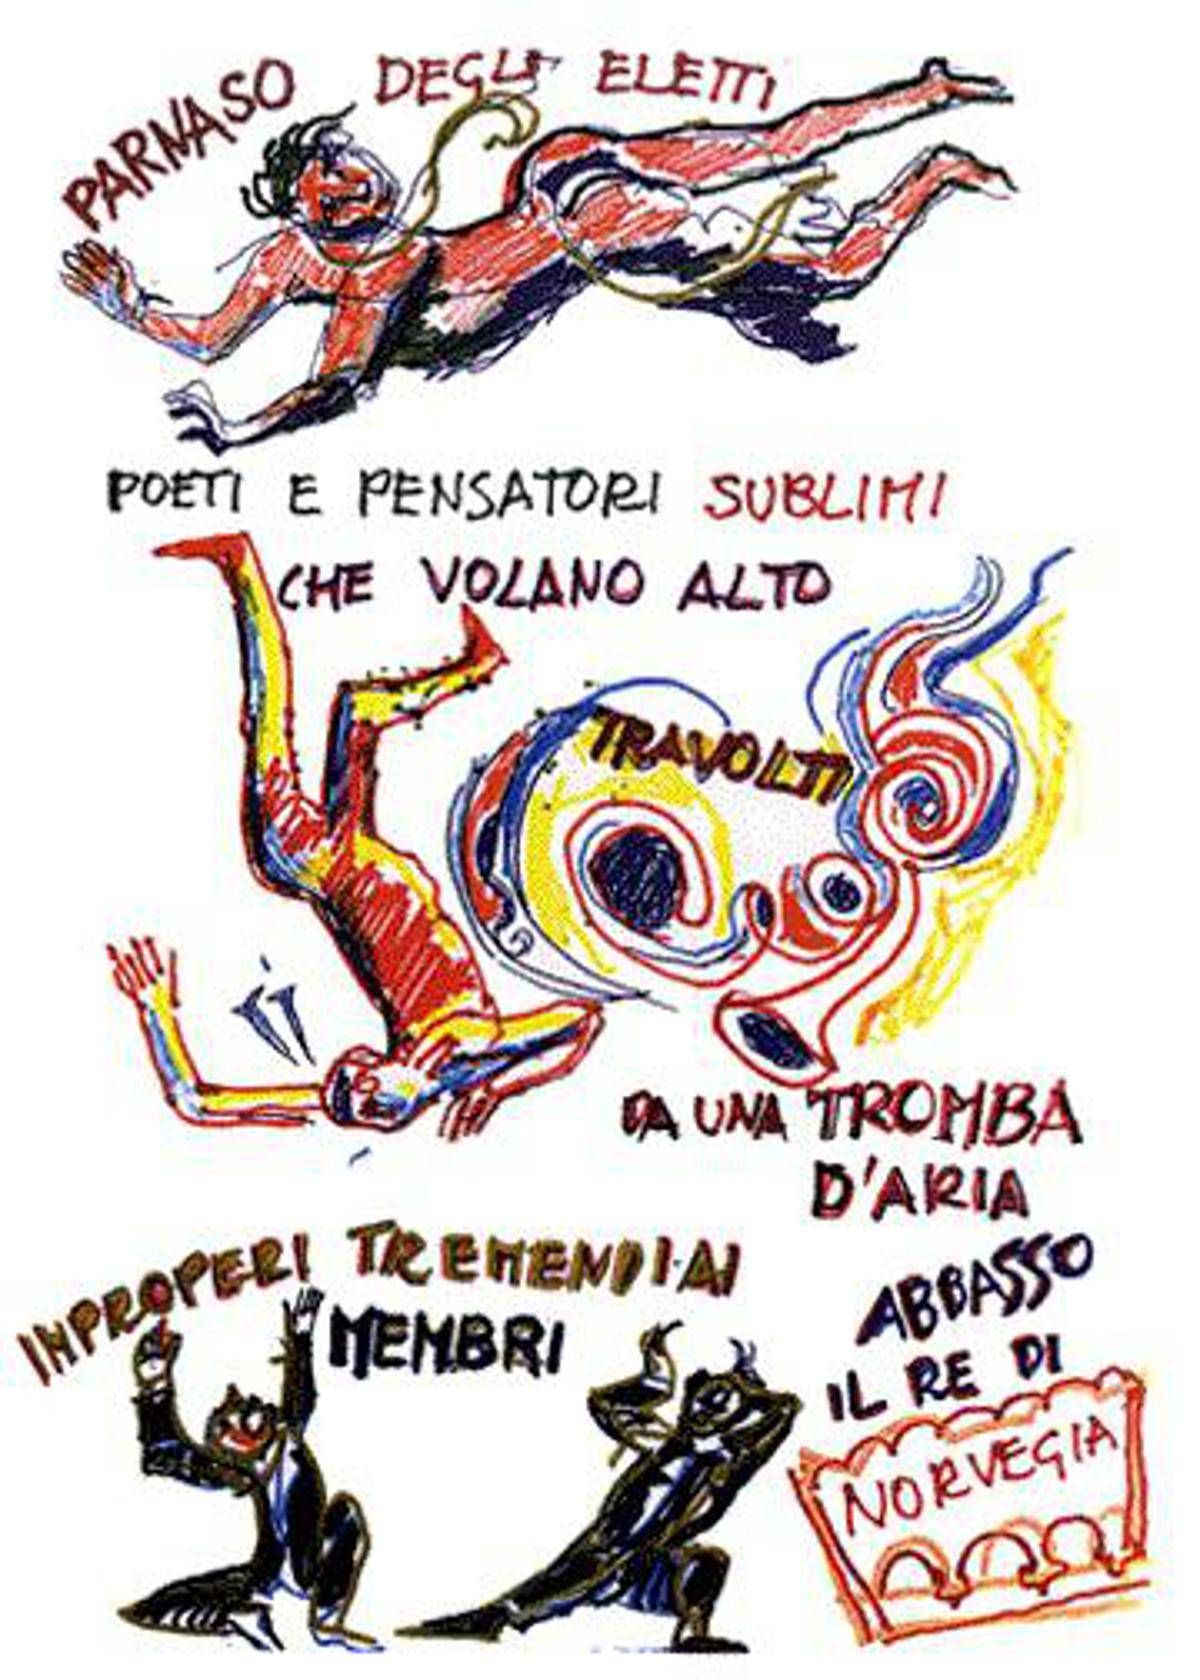 PARNASO DEGLI ELETTI
POETI E PENSATORI SUBLIMI
CHE VOLANO ALTO
TRAVOLTI
DA UNA TROMBA
D'ARIA
INPROPERI TREMENDI AI
MEMBRI
ABBASSO
IL RE DI
NORVEGIA